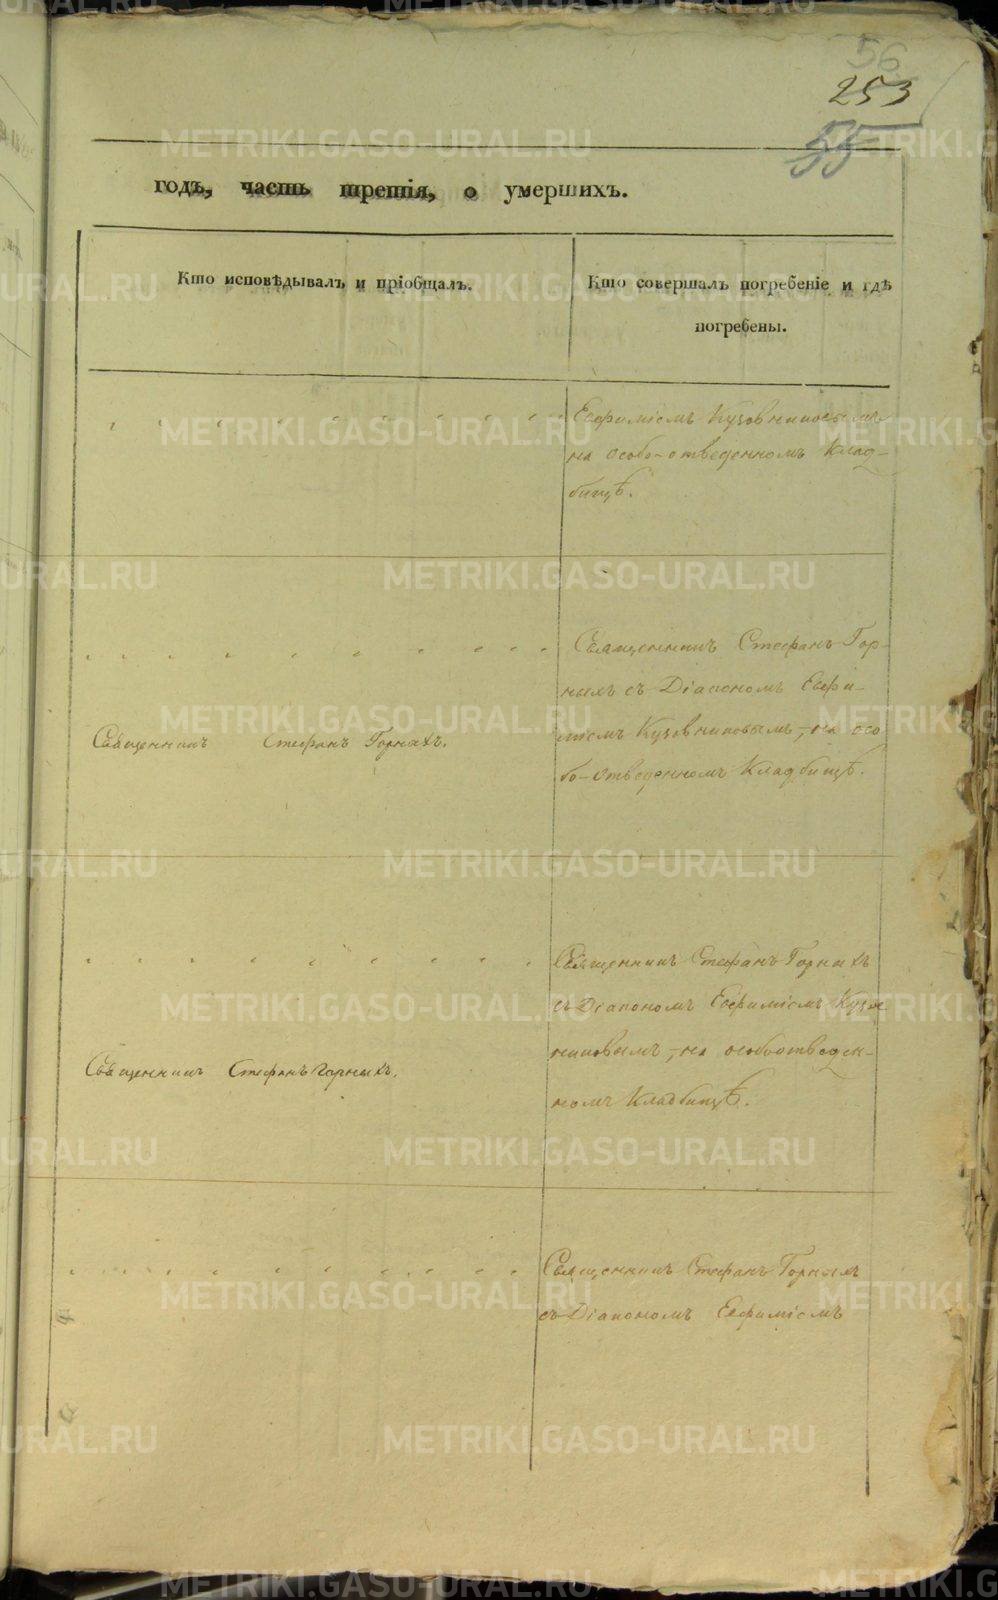 56
253
55
годъ, часть третія, о умершихъ.
Кто исповѣдывалъ и пріобщалъ.
Кто совершалъ погребеніе и гдѣ
погребены.
Евфиміемъ Кузовниковымъ
на особо-отведенномъ Клад-
бищѣ.
Священникъ Стефанъ Гор-
ныхъ съ Діакономъ Евфи-
міемъ Кузовниковымъ, на осо
бо-отведенномъ Кладбищѣ.
Священникъ Стефанъ Горныхъ.
Священникъ Стефанъ Горныхъ
съ Діакономъ Евфиміемъ Кузов
никовымъ, на особоотведен-
номъ Кладбищѣ.
Священникъ Стефанъ Горныхъ.
Священникъ Стефанъ Горныхъ
съ Діакономъ Евфиміемъ
METRIKI.GASO-URAL.RU